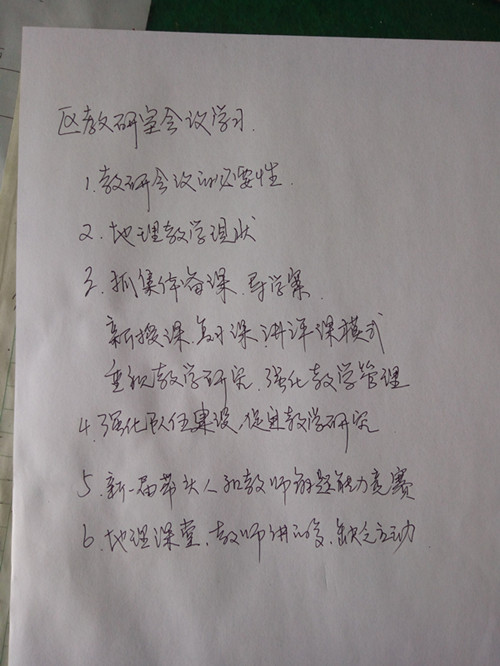 区教研室会议学习.
1.教研会议的必要性.
2.地理教学现状
3.抓集体备课.导学案.
新授课.复习课.讲评课模式
重视教学研究.强化教学管理
4.强化队伍建设,促进教学研究
5.新一届带头人和教师解题能力竞赛
6.地理课堂.教师讲的多.缺乏互动